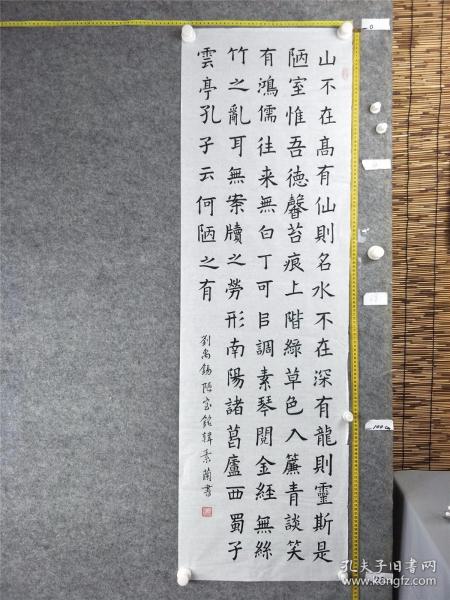 山不在高有仙則名水不在深有龍則靈斯是
陋室惟吾德馨苔痕上階綠草色入簾青談笑
有鴻儒往来無白丁可㠯調素琴閱金経無絲
竹之亂耳無案牘之勞形南陽諸葛廬西蜀子
雲亭孔子云何陋之有
劉禹錫陋室銘韓素蘭書
孔夫子旧书网
kongfz.com